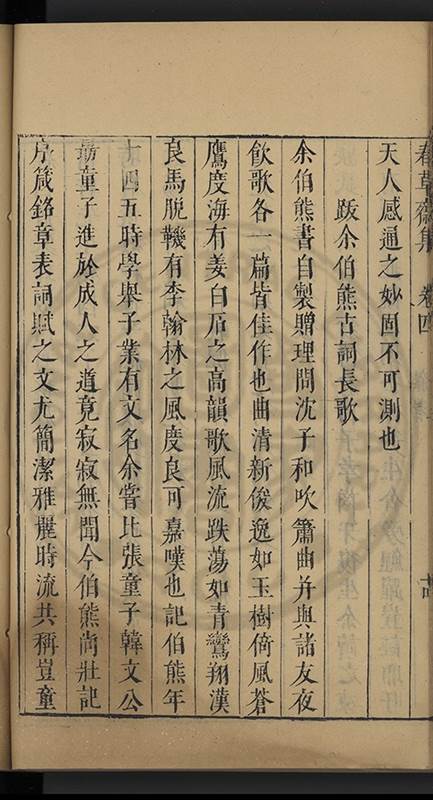 春草齋集 卷四
天人感通之妙固不可測也
跋余伯熊古詞長歌
余伯熊書自製贈理問沈子和吹簫曲并與諸友夜
飲歌各一篇皆佳作也曲清新俊逸如玉樹倚風蒼
鷹度海有姜白石之高韻歌風流跌蕩如青鸞翔漢
良馬脫鞿有李翰林之風度良可嘉嘆也記伯熊年
十四五時學舉子業有文名余嘗比張童子韓文公
勗童子進於成人之道竟寂寂無聞今伯熊尚壯記
序箴銘章表詞賦之文尤簡潔雅麗時流共稱豈童